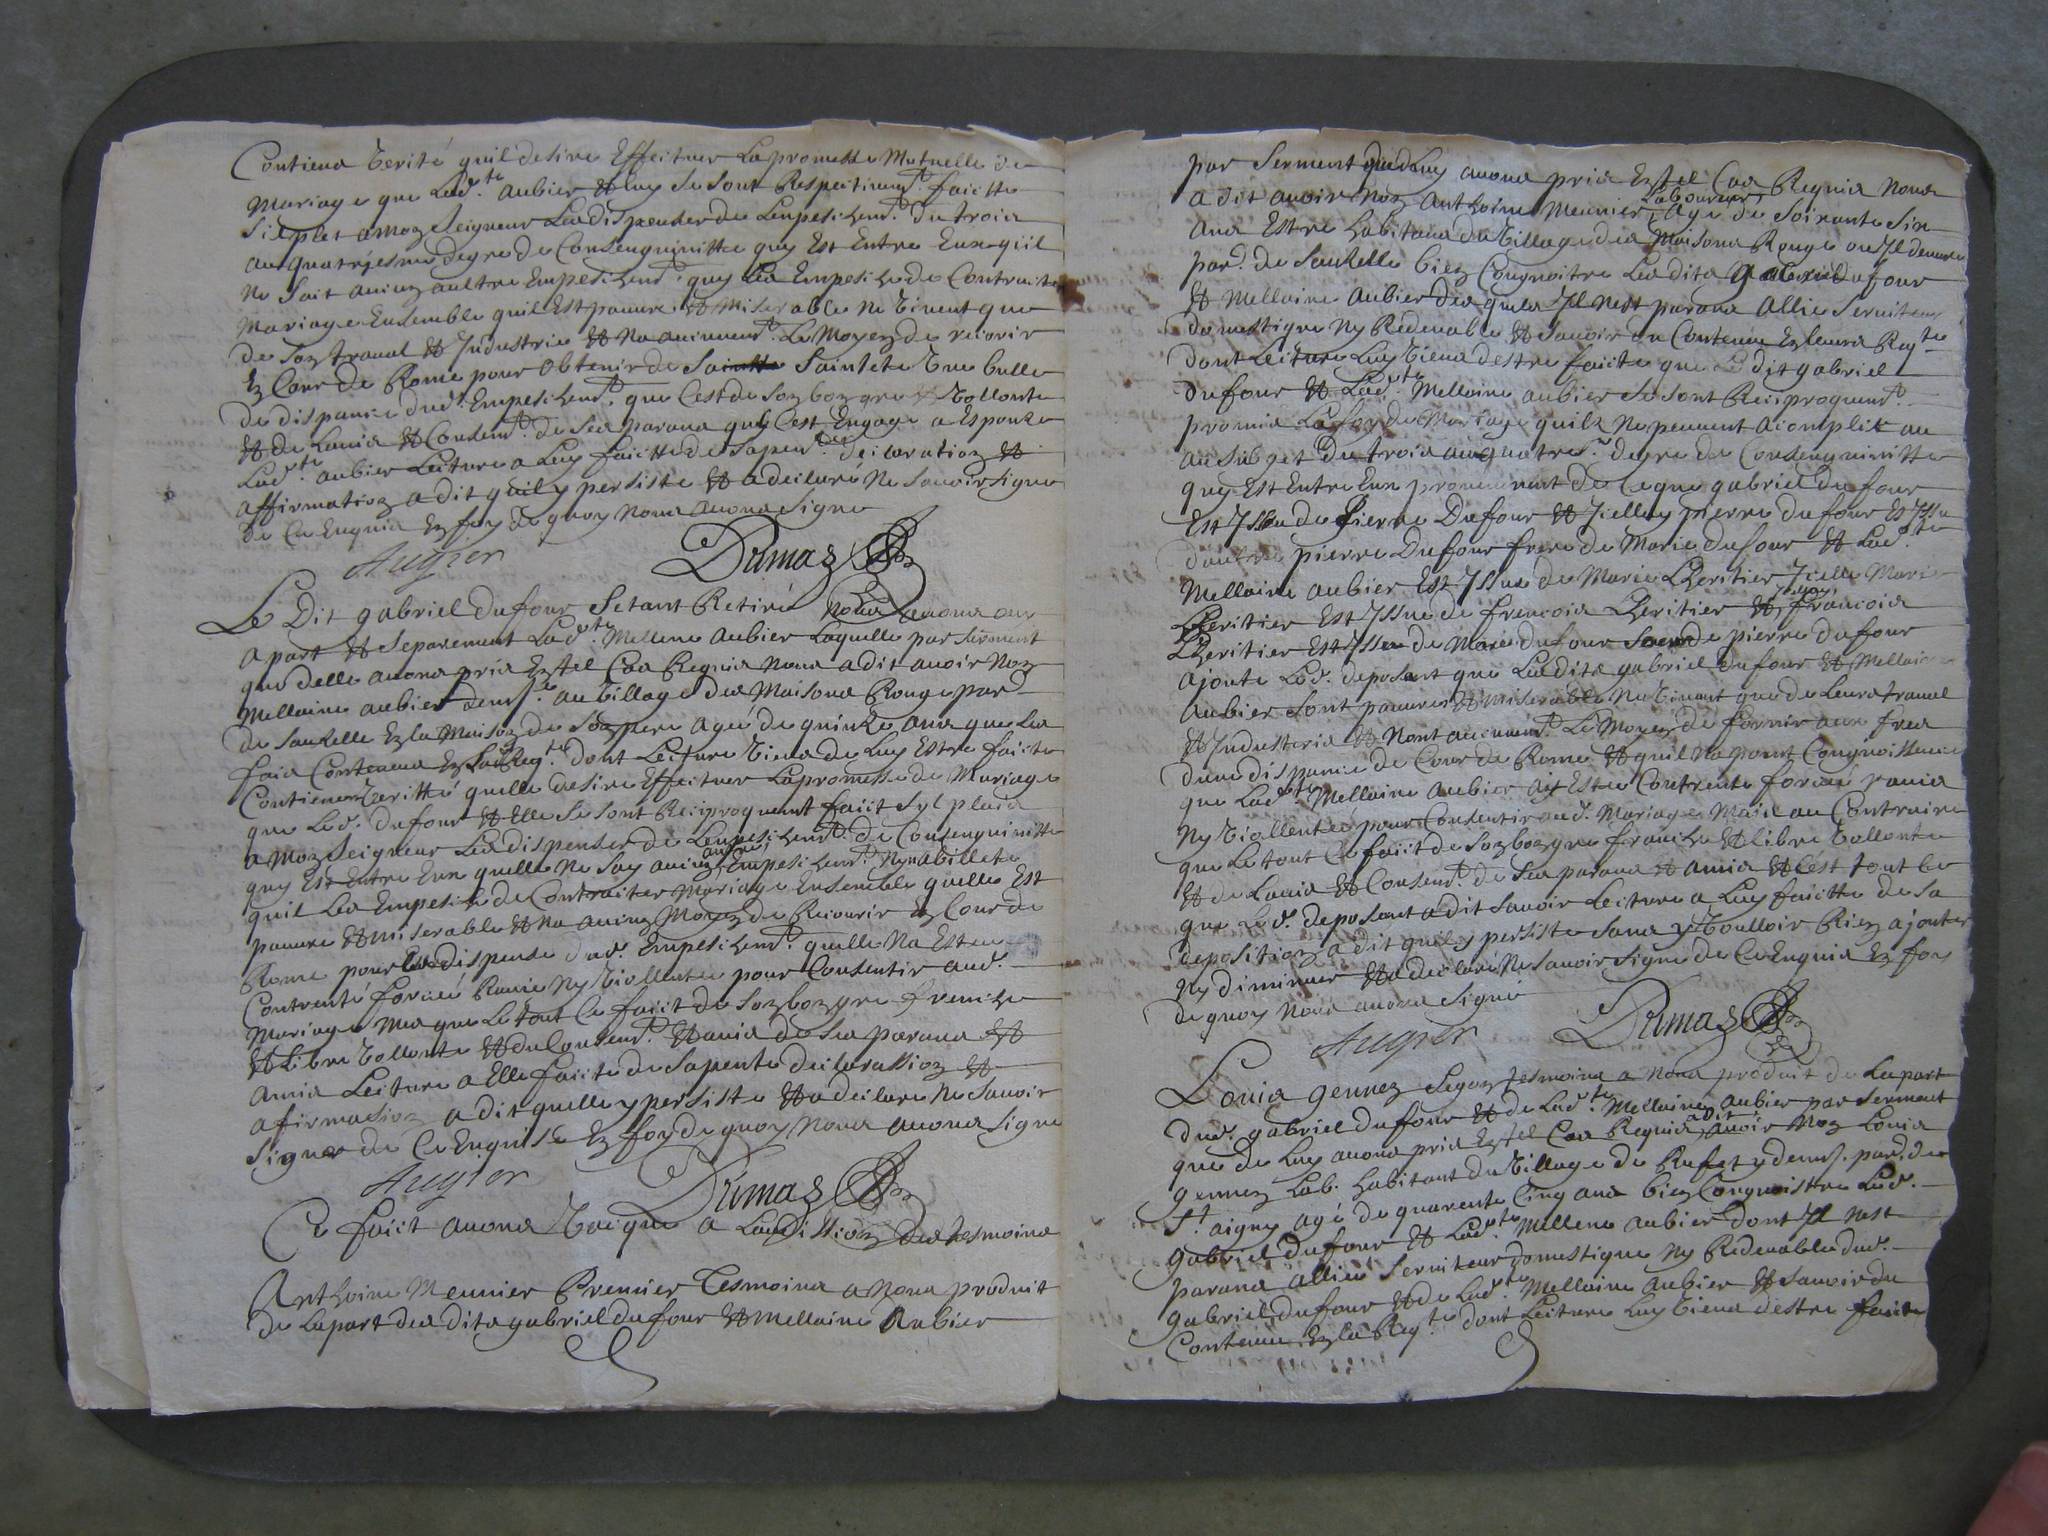 Contiena verité quil desire Effectuer La promesse Mutuelle de
Mariage que Lad.te aubier et luy se sont Respectivem.t faicte
Sil plet a Monseigneur Les dispenser de Lenpeschem.t du trois
au quatriesme degre de Consenguinitte quy Est Entre Eux quil
ne sait aucun aultre Empeschem.t quy Les Empesche de Contraiter
Mariage Ensemble quil Est pauvre et Miserable ne vivent que
de son traval et Industrie et Na aucunem.t Le Moyen de recorir
En Cour de Rome pour obtenir de Saincte Sainteté une bulle
de dispance dud. Empeschem.t que Cest de son bon gre vollonte
et de Lavis et Consem.t de ses parans quil Cest Engage a Espouze
Lad.te aubier Lecture a Luy faicte de sa pen.te declaration et
affirmation a dit quil y persiste et a declaré Ne savoir signe
de Ce Enquis En foy de quoy Nous avons signe
Augier Dumas
Le Dit gabriel dufour Setant Retiré Nous avons ouy
apart et separement Lad.te Mellene Aubier Laquelle par serment
que delle avons pris En tel Cas Requis Nous a dit avoir Non
Mellaine aubier demeur.te au village des Maisons Rouge par
de Sauzelle En la Maison de Son pere ageé de quinze ans que Les
fais Contenus En La Req.te dont Lecture viens de Luy Estre faicte
Contiene veritté quelle desire Effectuer La promesse de Mariage
que Led. dufour et Elle se sont Reciproquem.t faict syl plaid
a Monseigneur Les dispenser de Lenpeschem.t de Consenguinitte
quy Est Entre Eux quelle Ne say aucun autre Empeschem.t Ny nabillete
quil Les Empesche de Contraiter Mariage Ensemble quelle Est
pauvre et Miserable et Na aucun Moyen de Recourir En Cour de
Rome pour Les dispense dud. Empeschem.t quelle Na Estee
Contrenté forcée Ravie Ny viollentee pour Consentir aud.
Mariage Mes que Le tout Ce faict de son bon gre franche
et Libre vollonte et du Consem.t et avis de ses parans et
amis Lecture a Elle faicte de sa pente declarassion et
afirmasion a dit quelle y persiste et a declare Ne savoir
signer de Ce Enquise En foy de quoy Nous avons signe
Augier Dumas
Ce faict avons vacque a Laudission des tesmoins
Anthoine Meunier Premier Tesmoins a Nous produit
de La part des dits gabriel dufour et Mellaine Aubier
par Serment que de Luy avons pris En tel Cas Requis Nous
a dit avoir Non Anthoine Meunier Laboureur, age de Soixante Six
Ans Estre habitans du village des Maisons Rouge ou Il demeure
par. de Sauzelle bien Congnoitre Les dits Gabriel dufour
et Mellaine Aubier des ques Il Nest parans Allie Serviteur
domestique Ny Redevable et Savoir du Contenue En leurs Req.te
dont Lecture Luy viens destre faicte que Le dit gabriel
dufour et Lad.te Mellaine aubier se sont Reciproquem.t
promis La foy de Mariage quilz Ne peuvent acomplir au
au subget du trois au quatre.e degre de Consenguinitte
quy Est Entre Eux provenent de Ce que gabriel dufour
Est Issu de Pierre Duffour et Icelluy pierre dufour Est Issu
dautre pierre Dufour frere de Marie dufour et Lad.te
Mellaine aubier Est Issue de Marie Lheritier Icelle Marie
Lheritier Est Issue de francois Lheritier et Icelluy francois
Lheritier Est Issu de Marie dufour Soeur de pierre dufour
ajoute Led. deposant que Les dits gabriel dufour et Mellaine
Aubier sont pauvres et Miserable Ne vivent que de Leurs traval
et Industeris et Nont aucunem.t Le Moyen de fornir aux fres
dune dispance de Cour de Rome et quil Na point Congnoissence
que Lad.te Mellaine Aubier ayt Estee Contrente forcée ravie
Ny viollentee pour Consentir aud. Mariage Mais au Contraire
que Le tout Ce faict de son bon gre franche et Libre vollonte
et de Lavis et Consem.t de ses parans et amis et Cest tout Ce
que Led. deposant a dit Savoir Lecture a Luy faicte de Sa
deposition a dit quil y persiste sans y voulloir Rien ajouter
Ny diminuer et a declaré Ne savoir signe de Ce Enquis En foy
de quoy Nous avons signé
Augier Dumas
Louis gennez Segon tesmoins a Nous produit de La part
dud. gabriel dufour et de Lad.te Mellaine Aubier par serment
que de Luy avons pris En tel Cas Requis a dit avoir Non Louis
gennez Lab. habitant du village de Rufet y demeur. par. de
St. aigny agé de quarente Cinq ans bien Congnoistre Led.
gabriel dufour et Lad.te Mellene aubier dont Il nest
parans allies serviteur domestique Ny Redevable dud.
gabriel dufour et de Lad.te Mellaine Aubier et Savoir du
Contenue En la Req.te dont Lecture Luy viens destre faicte